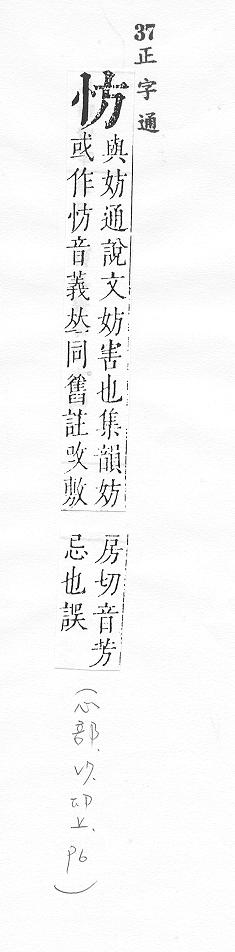 37
正字通
㤃
與妨通說文妨害也集韻妨
或作㤃音義丛同舊註改敷
房切音芳
忌也誤
(心部. 卯上. P6)